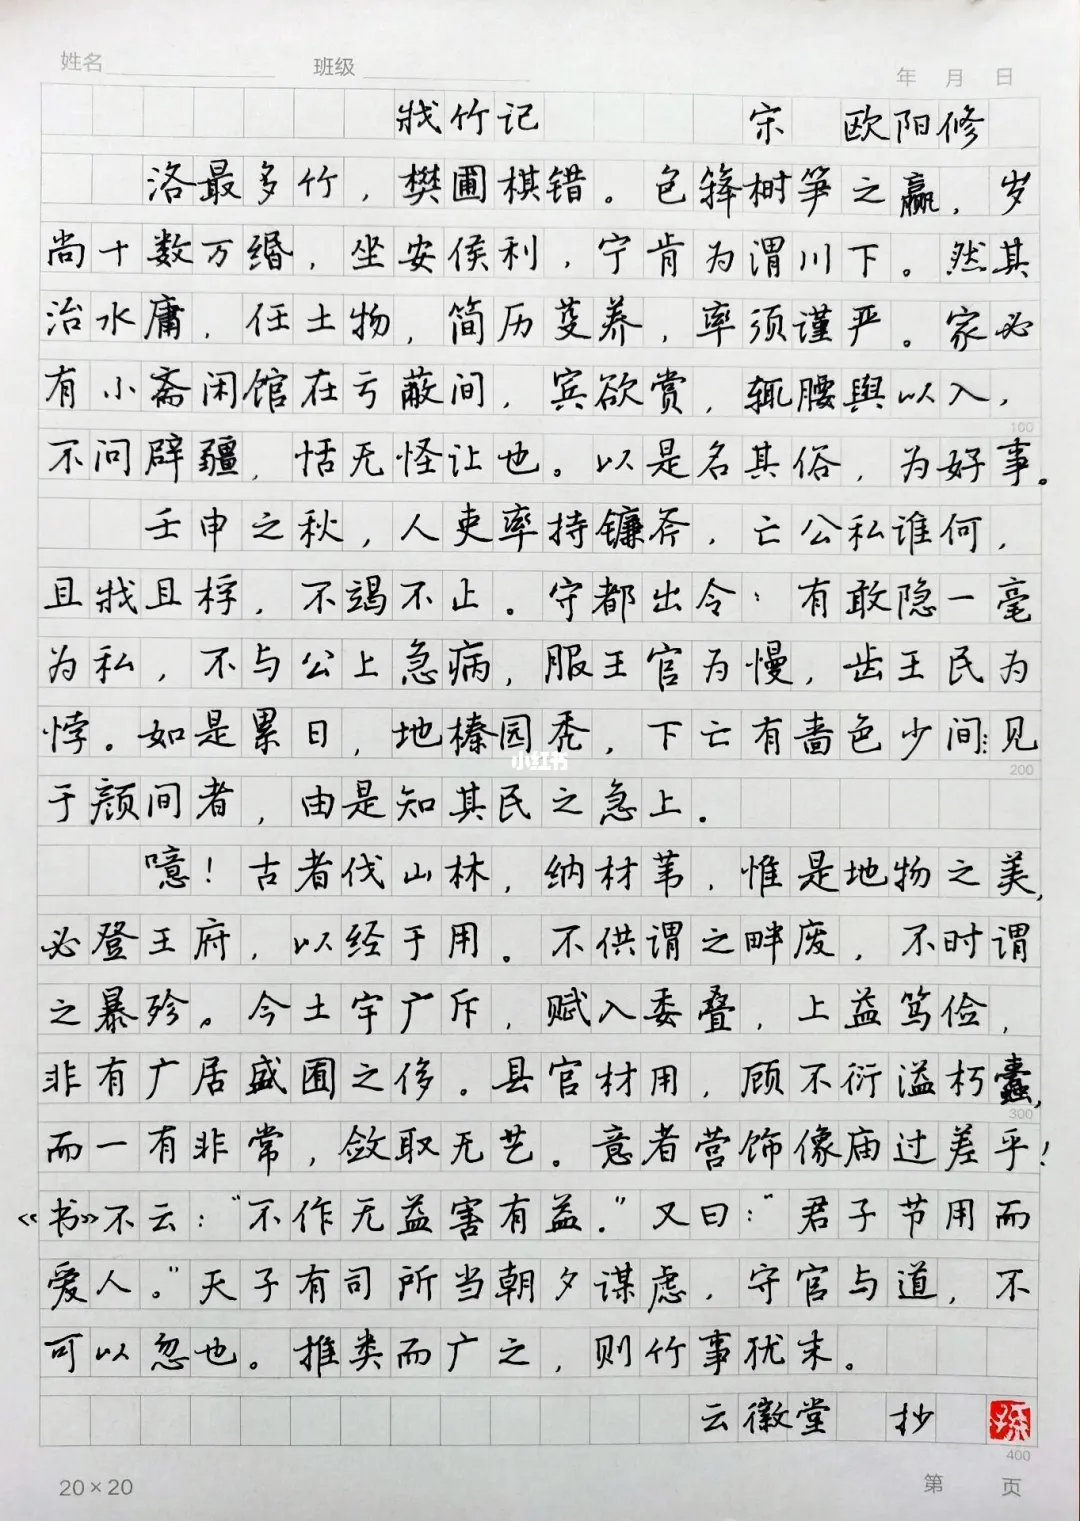 姓名 班级 年 月 日
戕竹记 宋 欧阳修
洛最多竹，樊圃棋错。包箨榯笋之赢，岁
尚十数万缗，坐安侯利，宁肯为渭川下。然其
治水庸，任土物，简历芟养，率须谨严。家必
有小斋闲馆在亏蔽间，宾欲赏，辄腰舆以入，
100
不问辟疆，恬无怪让也。以是名其俗，为好事。
壬申之秋，人吏率持镰斧，亡公私谁何，
且戕且桴，不竭不止。守都出令：有敢隐一毫
为私，不与公上急病，服王官为慢，齿王民为
悖。如是累日，地榛园秃，下亡有啬色少间：见
小红书
200
于颜间者，由是知其民之急上．
噫！古者伐山林，纳材苇，惟是地物之美，
必登王府，以经于用。不供谓之畔废，不时谓
之暴殄。今土宇广斥，赋入委叠，上益笃俭，
非有广居盛囿之侈。县官材用，顾不衍溢朽蠹，
300
而一有非常，敛取无艺。意者营饰像庙过差乎！
《书》不云：“不作无益害有益．”又曰：“君子节用而
爱人。”天子有司所当朝夕谋虑，守官与道，不
可以忽也。推类而广之，则竹事犹末。
云徽堂 抄
400
20×20 第 页